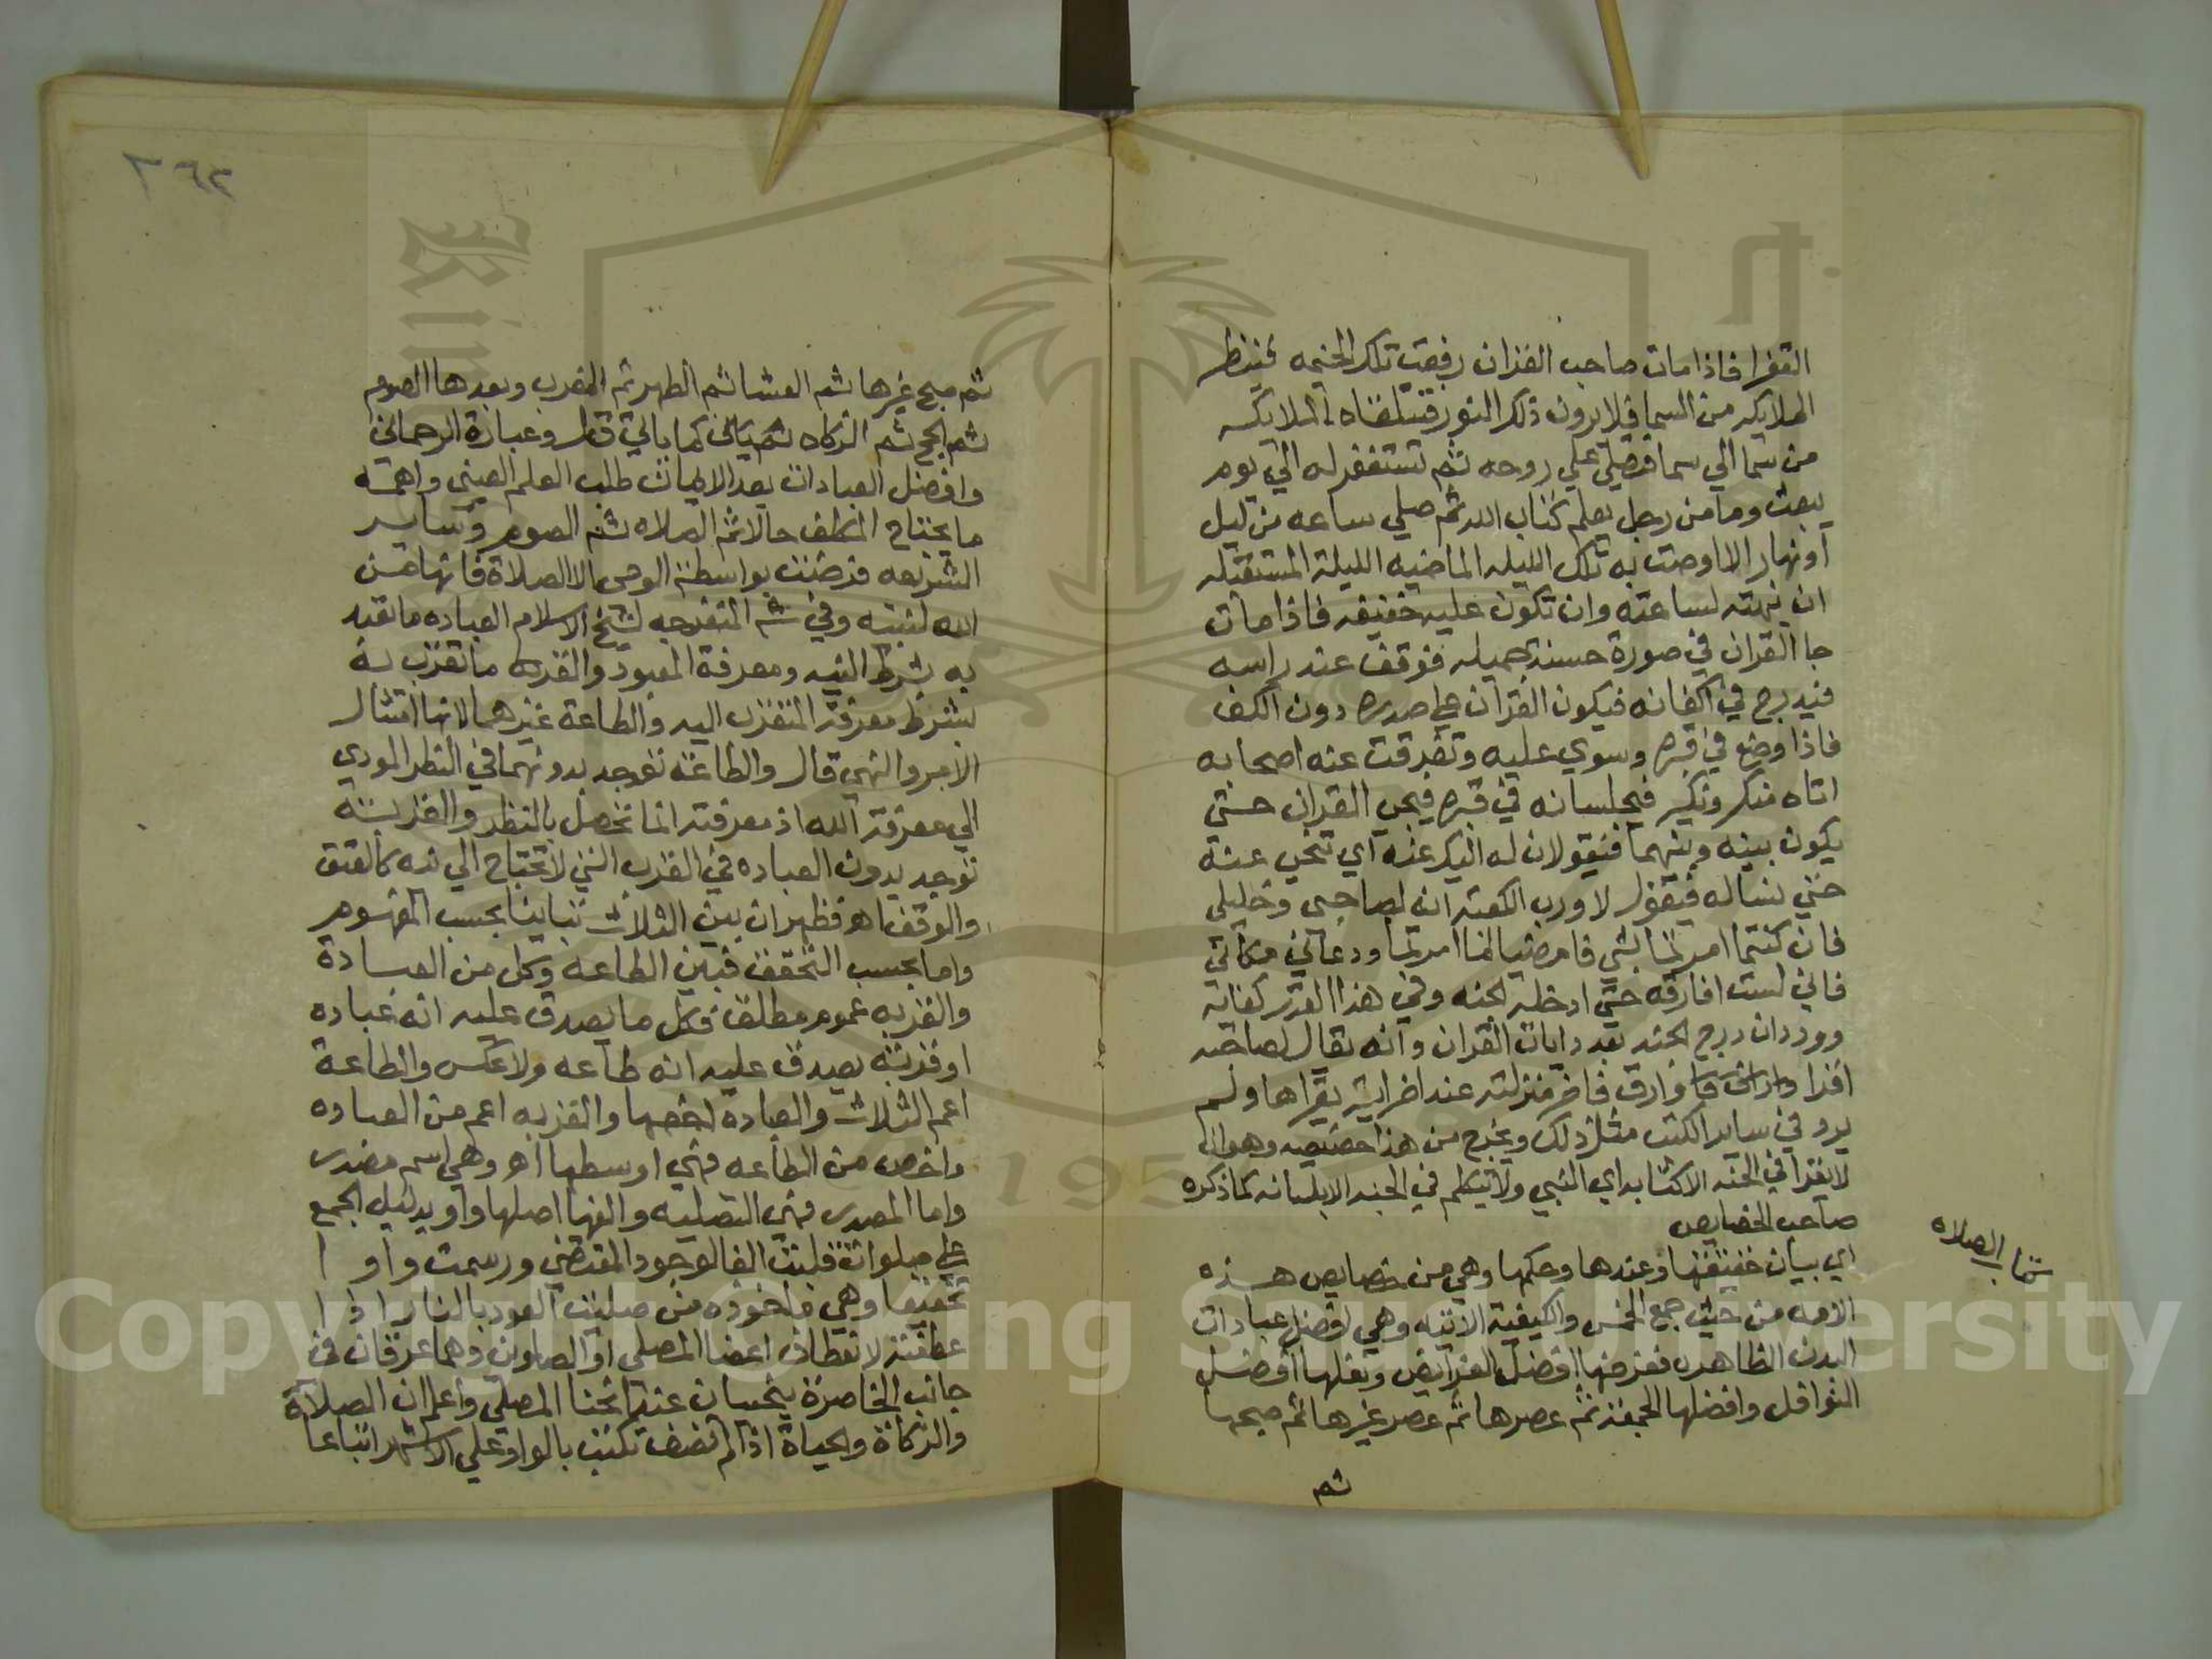 القفرا فاذا مات صاحب القران رفعت تلك الخيمه فينظر
الملايكه من السما فلا يرون ذلك النور فتتلقاه الملايكه
من سما الي سما فتصلي علي روحه ثم تستغفر له الي يوم
يبعث وما من رجل يعلم كتاب الله ثم صلي ساعه من ليل
او نهار الا اوصت به تلك الليله الماضيه الليلة المستقبله
ان ينبهته لساعته وان تكون عليه خفيفه فاذا مات
جا القران في صورة حسنة جميله فوقف عند راسه
فيدرج في اكفانه فيكون القران علي صدره دون الكفن
فاذا وضع في قبره وسوي عليه وتفرقت عنه اصحابه
اتاه منكر ونكير فيجلسانه في قبره فيجي القران حتي
يكون بينه وبينهما فيقولان له اليك عنه اي تنحي عنه
حتي نساله فيقول لا ورب الكعبه انه لصاحبي وخليلي
فان كنتما امرتما بشي فامضيا لما امرتما ودعاني مكاني
فاني لست افارقه حتي ادخله الجنه وفي هذا القدر كفاية
وورد ان درج الجنه بعدد ايات القران وانه يقال لصاحبه
اقرا وارق فاخر منزلته عند اخر اية يقراها ولم
يرد في ساير الكتب مثل ذلك ويخرج من هذا خصيصه وهوانه
لا يقرا في الجنه الا كتابه اي النبي ولا يتكلم في الجنه الا بلسانه كما ذكره
صاحب الخصايص
كتاب الصلاه
اي بيان حقيقتها وعددها وحكمها وهي من خصايص هذه
الامه من حيث جمع الخمس والكيفية الاتيه وهي افضل عبادات
البدن الظاهره ففرضها افضل الفرايض ونفلها افضل
النوافل وافضلها الجمعه ثم عصرها ثم عصر غيرها ثم صبحها
ثم
٣٦٢
ثم صبح غيرها ثم العشا ثم الظهر ثم المغرب وبعدها الصوم
ثم الحج ثم الزكاه كما ياتي قال وعبارة الرحماني
وافضل العبادات بعد الايمان طلب العلم العيني واهمه
ما يحتاج المكلف حالا ثم الصلاه ثم الصوم وساير
الشريعه فرضت بواسطة الوحي الا الصلاة فانها من
الله لنبيه وفي شم المنفرجه لشيخ الاسلام العباده ما تعبد
به بشرط النيه ومعرفة المعبود والقربه ما تقرب به
بشرط معرفة المتقرب اليه والطاعة غيرهما لانها امتثال
الامر والنهي قال والطاعة توجد بدونهما في النظر المودي
الي معرفة الله اذ معرفته انما تحصل بالنظر والقربة
توجد بدون العباده في القرب التي لا تحتاج الي نيه كالعتق
والوقف اهـ فظهر ان بين الثلاث تباينا بحسب المفهوم
واما بحسب التحقق فبين الطاعه وكل من العبادة
والقربه عموم مطلق فكل ما يصدق عليه انه عباده
او قربة يصدق عليه انه طاعه ولا عكس والطاعة
اعم الثلاث والعباده اخصها والقربه اعم من العباده
واخص من الطاعه فهي اوسطها اهـ وهي اسم مصدر
واما المصدر فهي التصليه والفها اصلها واو بدليل الجمع
علي صلوات قلبت الفا لوجود المقتضي ورسمت واوا
تخفيفا وهي ماخوذه من صليت العود بالنار اذا
عطفته لانعطاف اعضا المصلي او الصلوين وهما عرقان في
جانب الخاصرة ينحنيان عند انحنا المصلي واعلم ان الصلاة
والزكاة والحياة اذا لم تضف تكتب بالواو علي الاشهر اتباعا